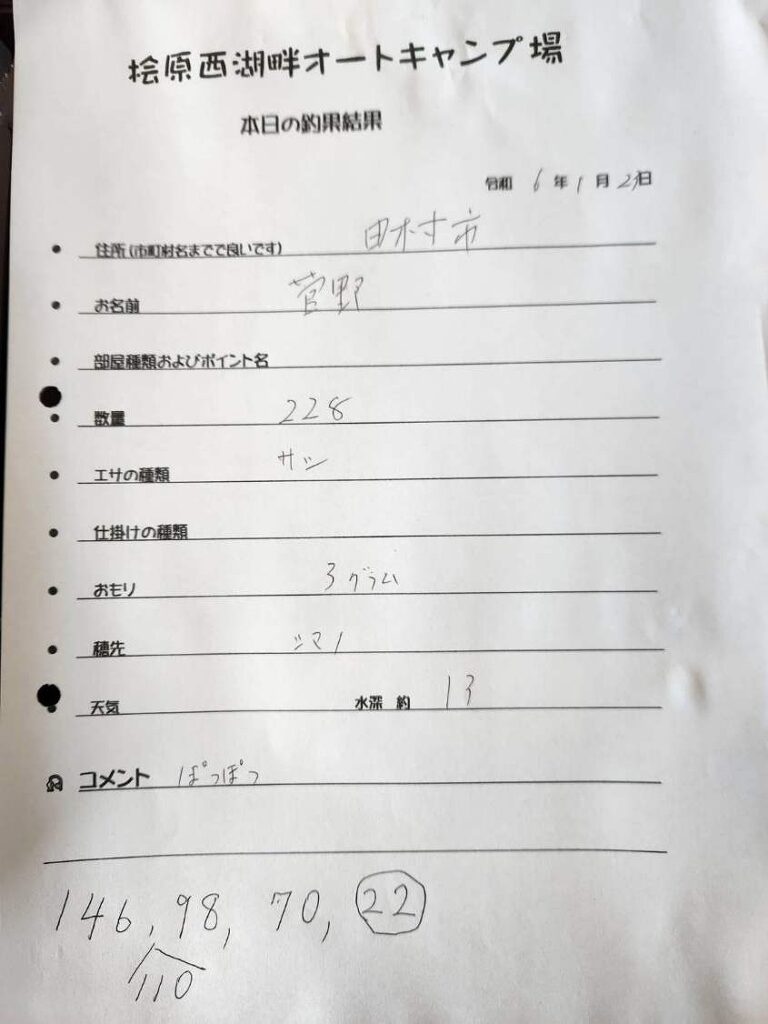 桧原西湖畔オートキャンプ場
本日の釣果結果
令和 6 年 1 月 27日
住所(市町村名までで良いです) 田村市
お名前 菅野
部屋種類およびポイント名
数量 228
エサの種類 サシ
仕掛けの種類
おもり 3グラム
穂先 シマノ
天気 水深 約 13
コメント ぽつぽつ
146, 98, 70, 22
110